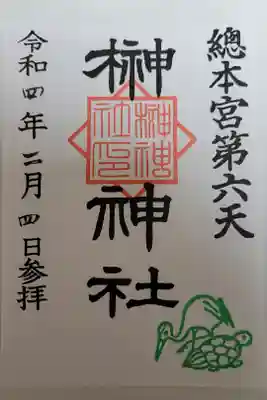 總本宮第六天
榊神社
榊神社印
令和四年二月四日参拝